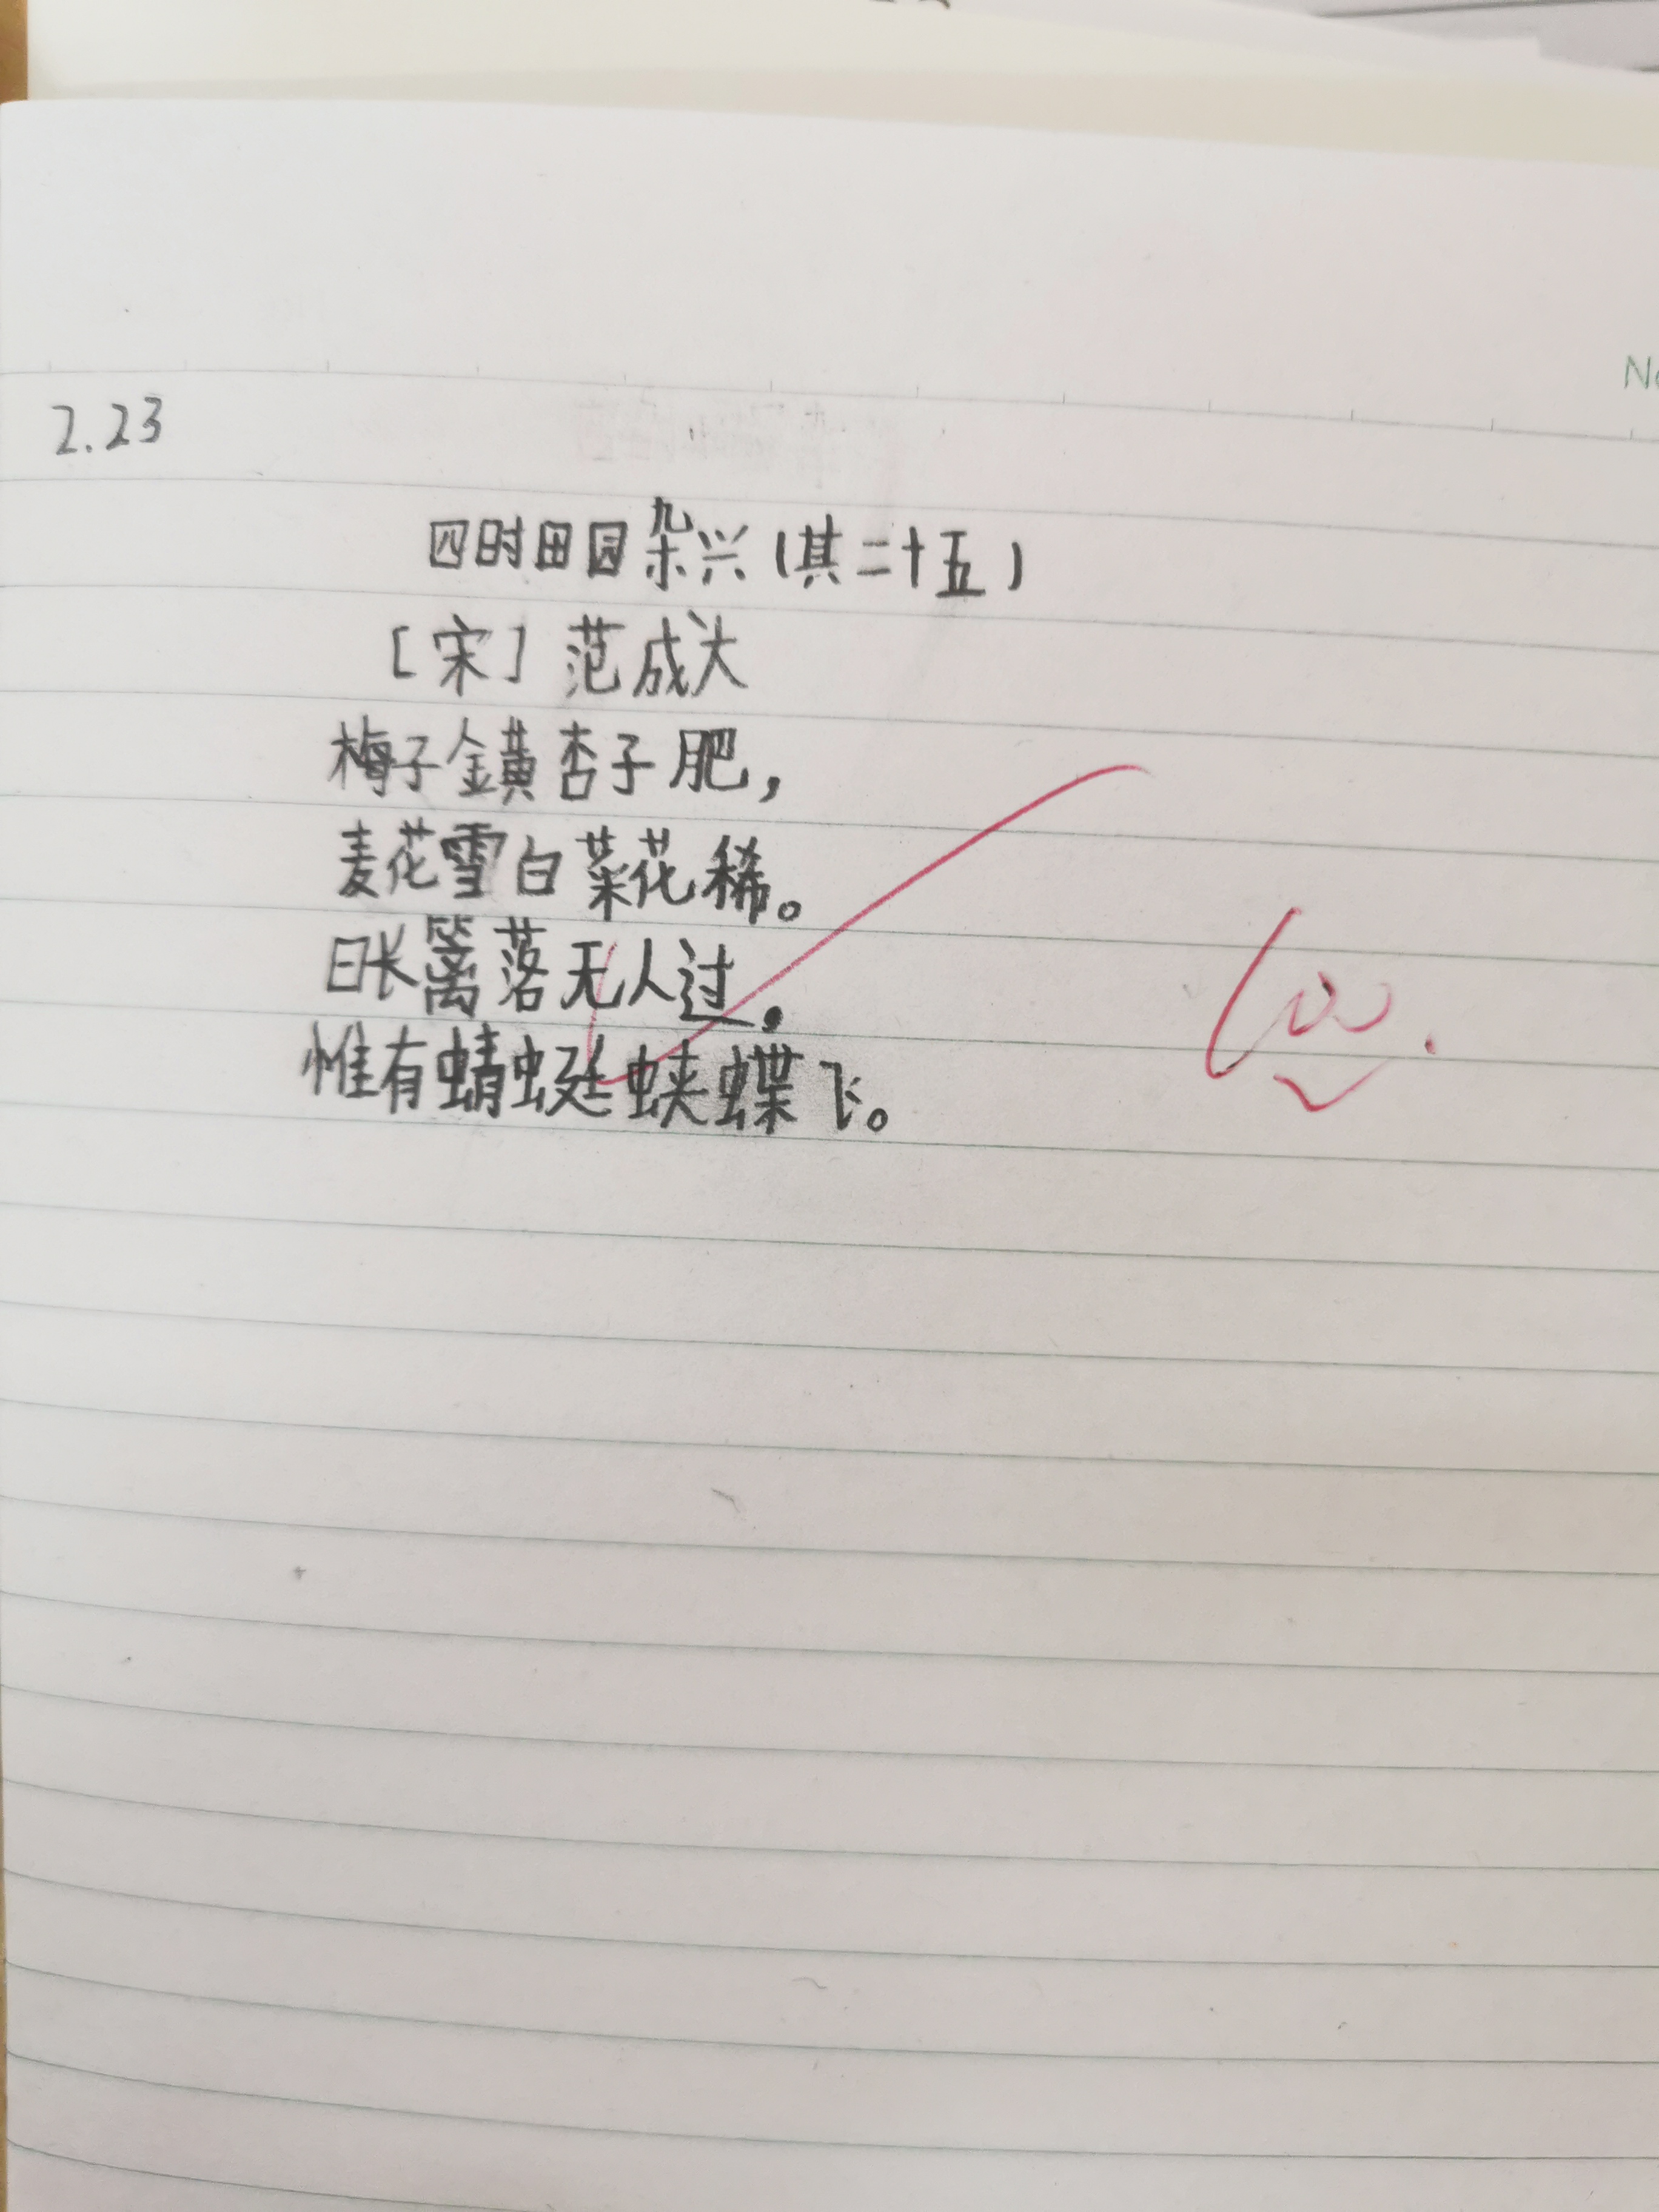 2.23
四时田园杂兴(其二十五)
[宋] 范成大
梅子金黄杏子肥,
麦花雪白菜花稀。
日长篱落无人过,
惟有蜻蜓蛱蝶飞。